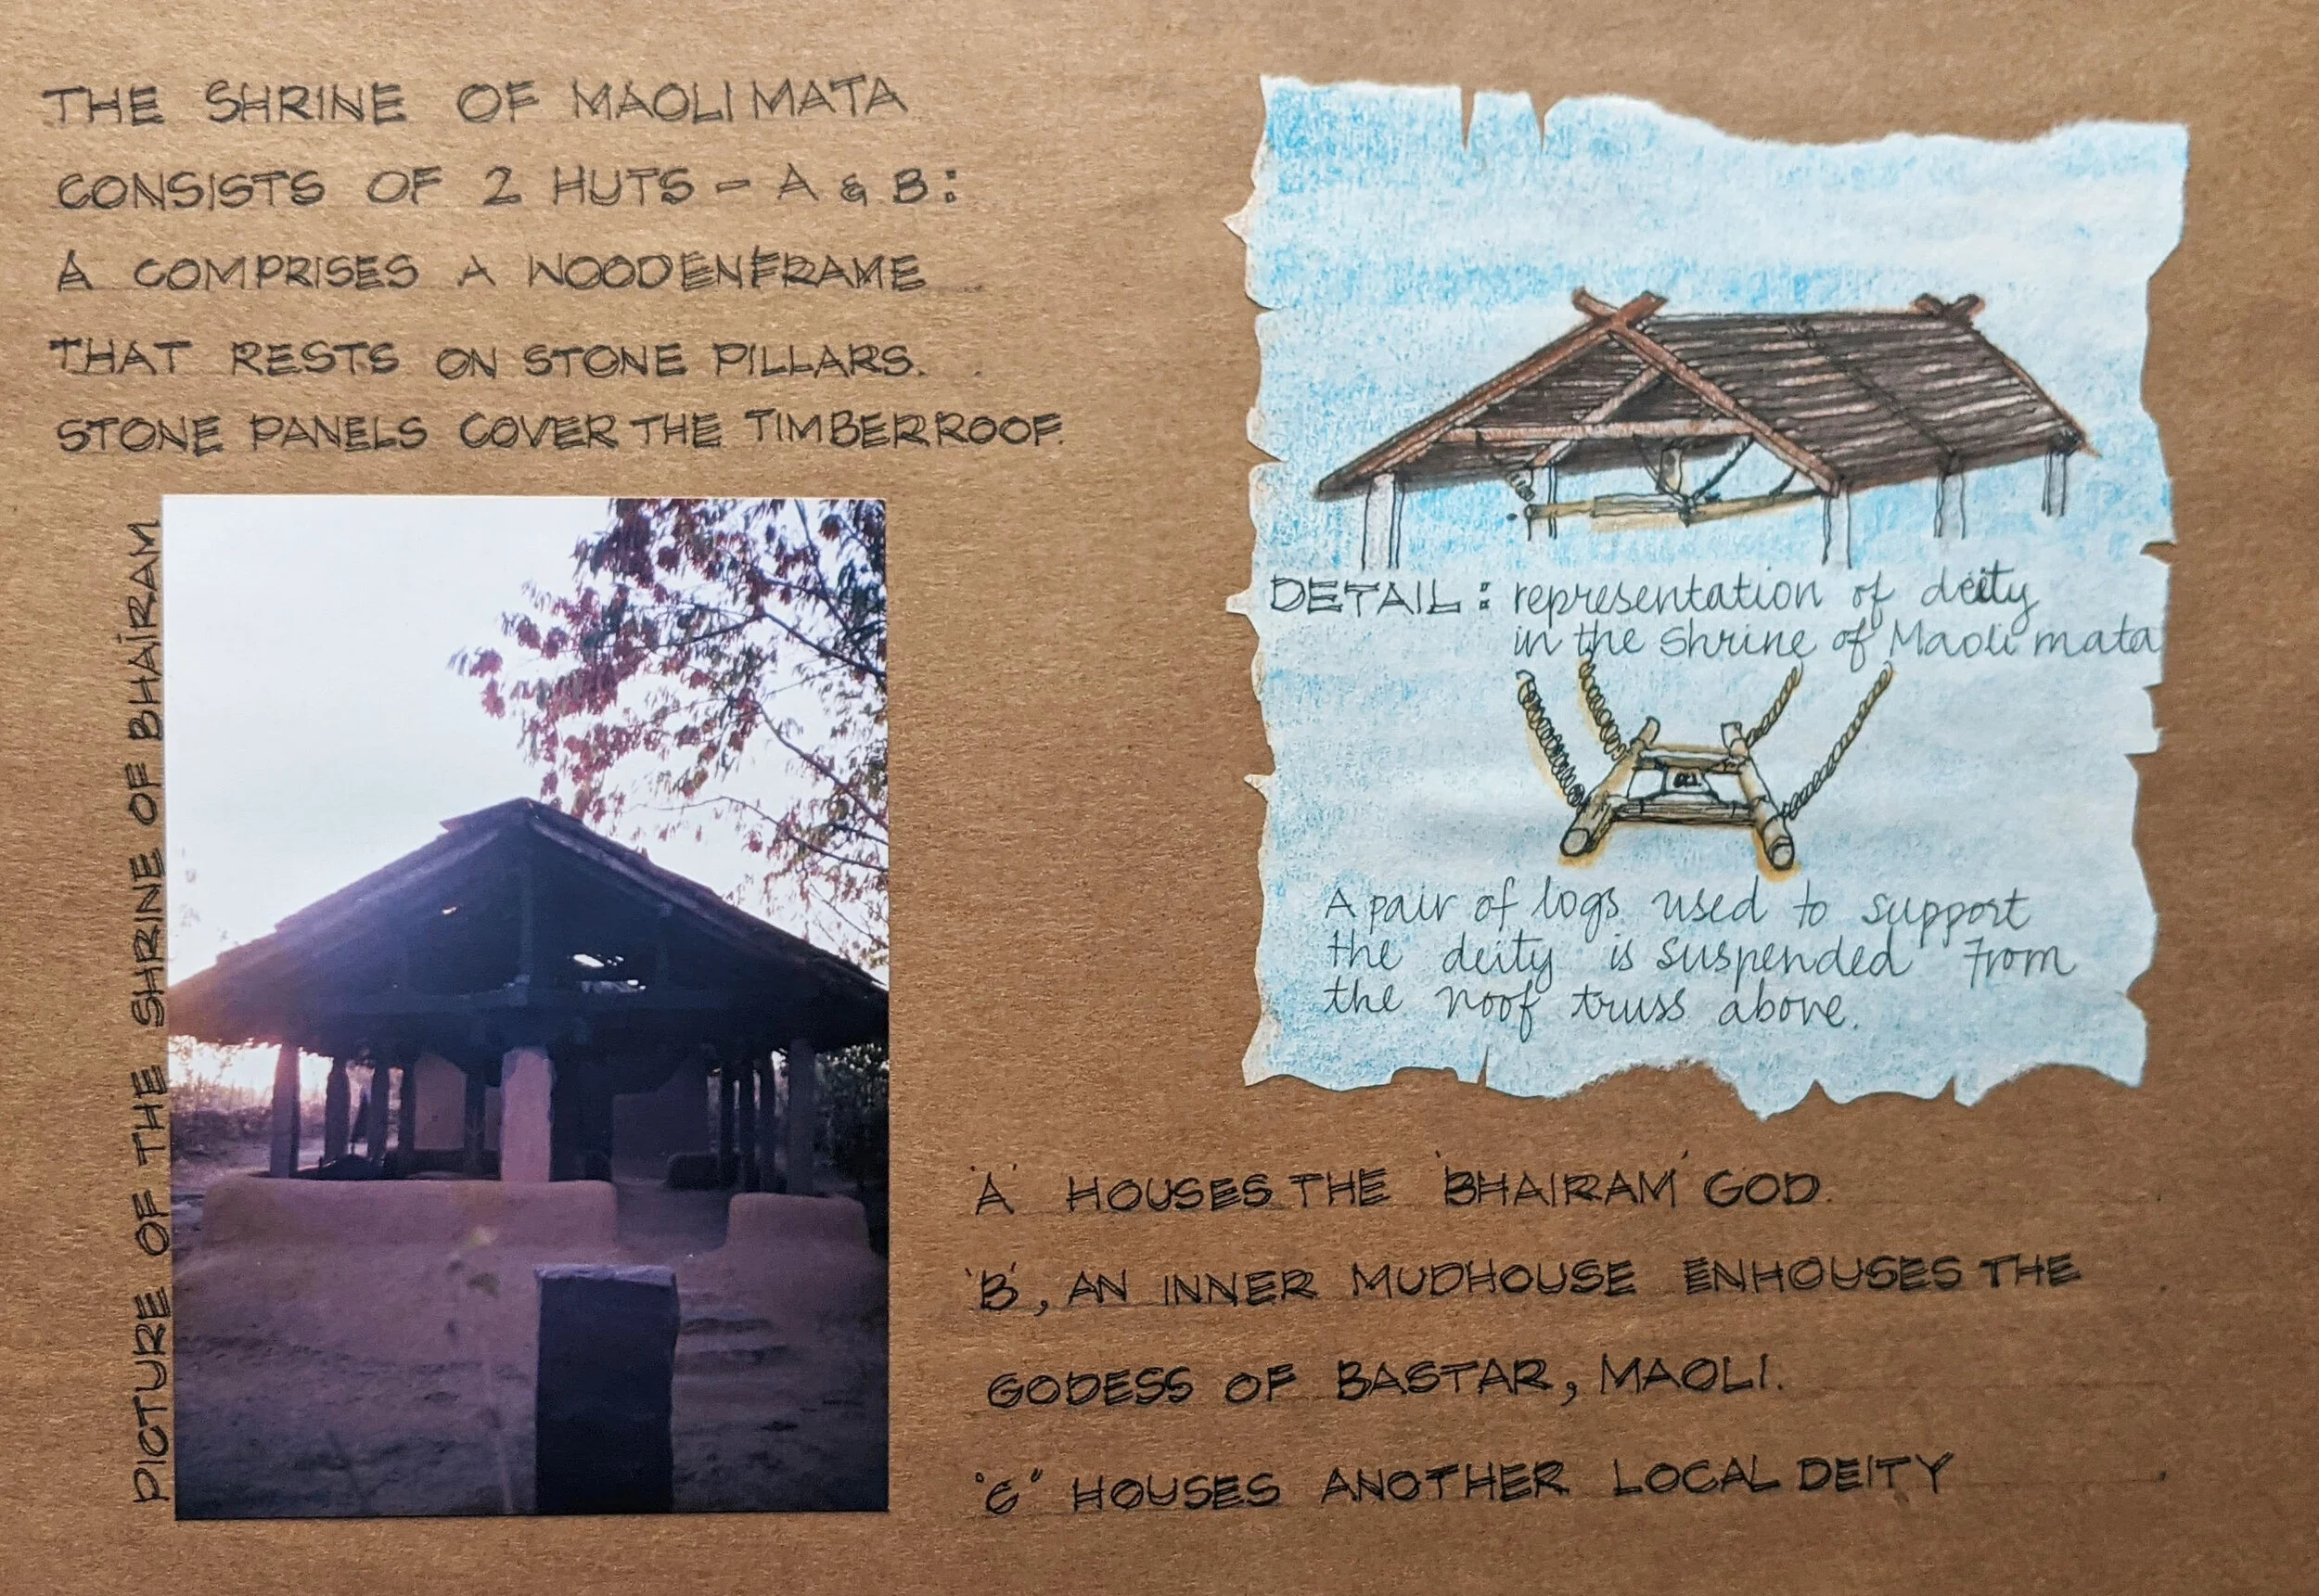 THE SHRINE OF MAOLI MATA
CONSISTS OF 2 HUTS - A & B:
A COMPRISES A WOODEN FRAME
THAT RESTS ON STONE PILLARS.
STONE PANELS COVER THE TIMBER ROOF.
PICTURE OF THE SHRINE OF BHAIRAM
DETAIL: representation of deity
in the Shrine of Maoli mata
A pair of logs used to support
the deity is suspended from
the roof truss above.
'A' HOUSES THE 'BHAIRAM' GOD.
'B', AN INNER MUDHOUSE ENHOUSES THE
GODESS OF BASTAR, MAOLI.
"C" HOUSES ANOTHER LOCAL DEITY